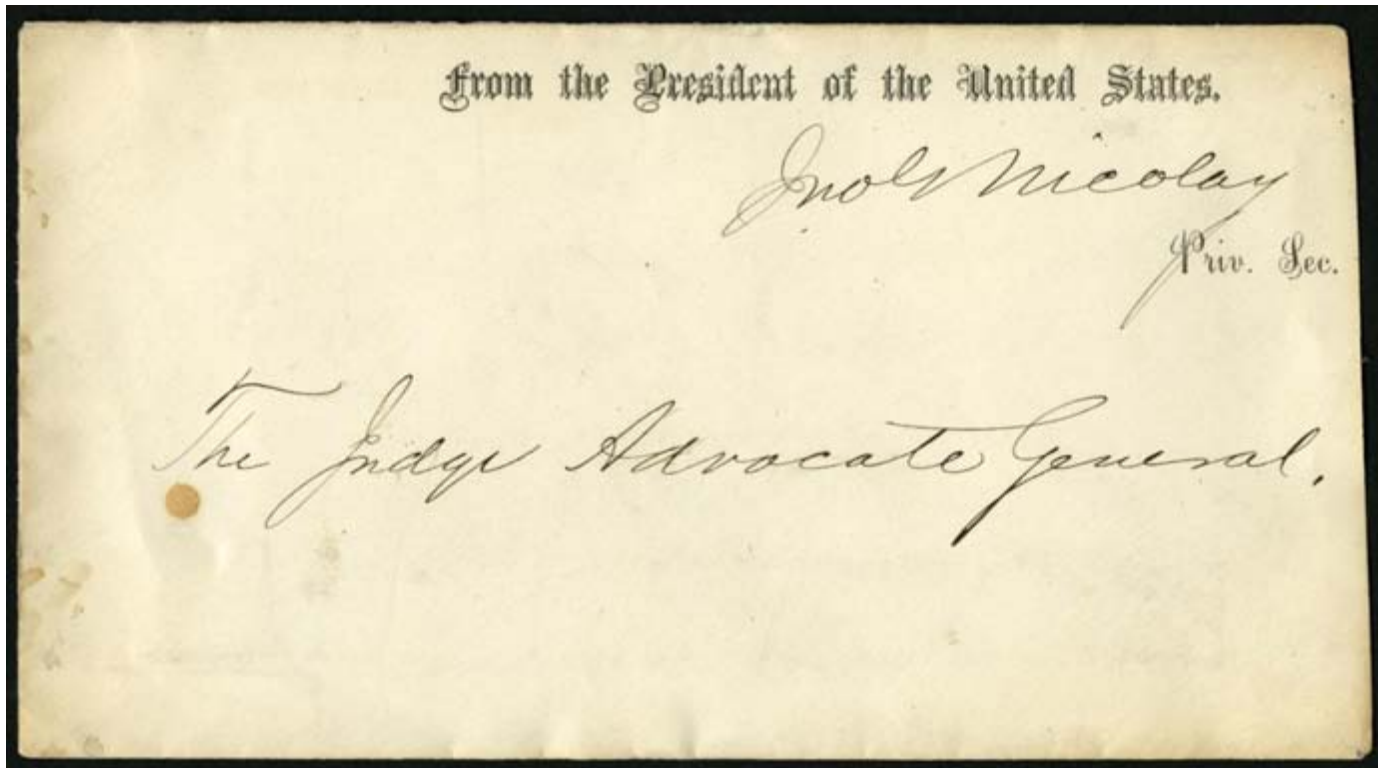 From the President of the United States.
Jno G Nicolay
Priv. Sec.
The Judge Advocate General.